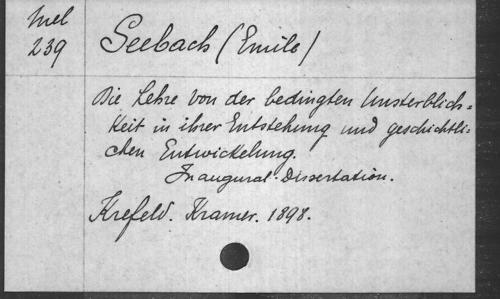 Mel
239
Seebach (Emile)
Die Lehre von der bedingten Unsterblich-
keit in ihrer Entstehung und geschichtli-
chen Entwickelung.
Inaugural-Dissertation.
Krefeld. Kramer. 1898.